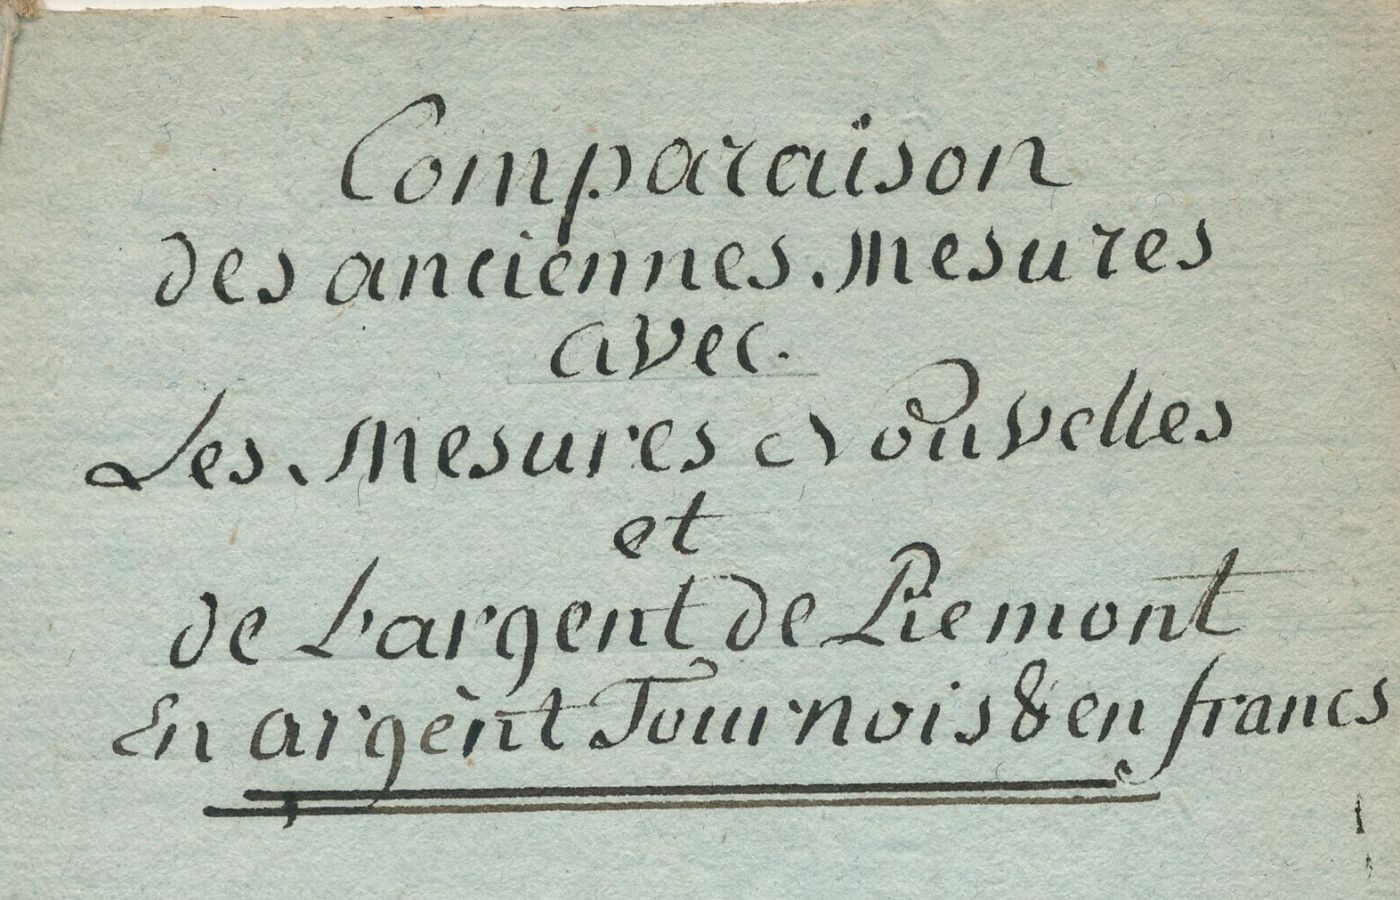 Comparaison
des anciennes mesures
avec
Les mesures Nouvelles
et
de L'argent de Piemont
En argènt Tournois & en francs